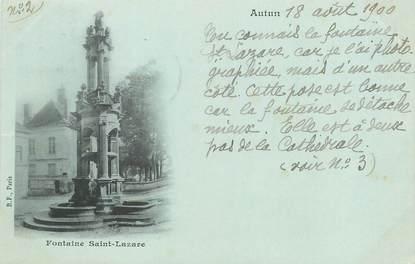 No. 2
Autun 18 août 1900
Tu connais la fontaine
St Lazare, car je l'ai photo
graphiée, mais d'un autre
côté. Cette pose est bonne
car la fontaine se détache
mieux. Elle est à deux
pas de la Cathédrale.
(voir No. 3)
B. F., Paris
Fontaine Saint-Lazare